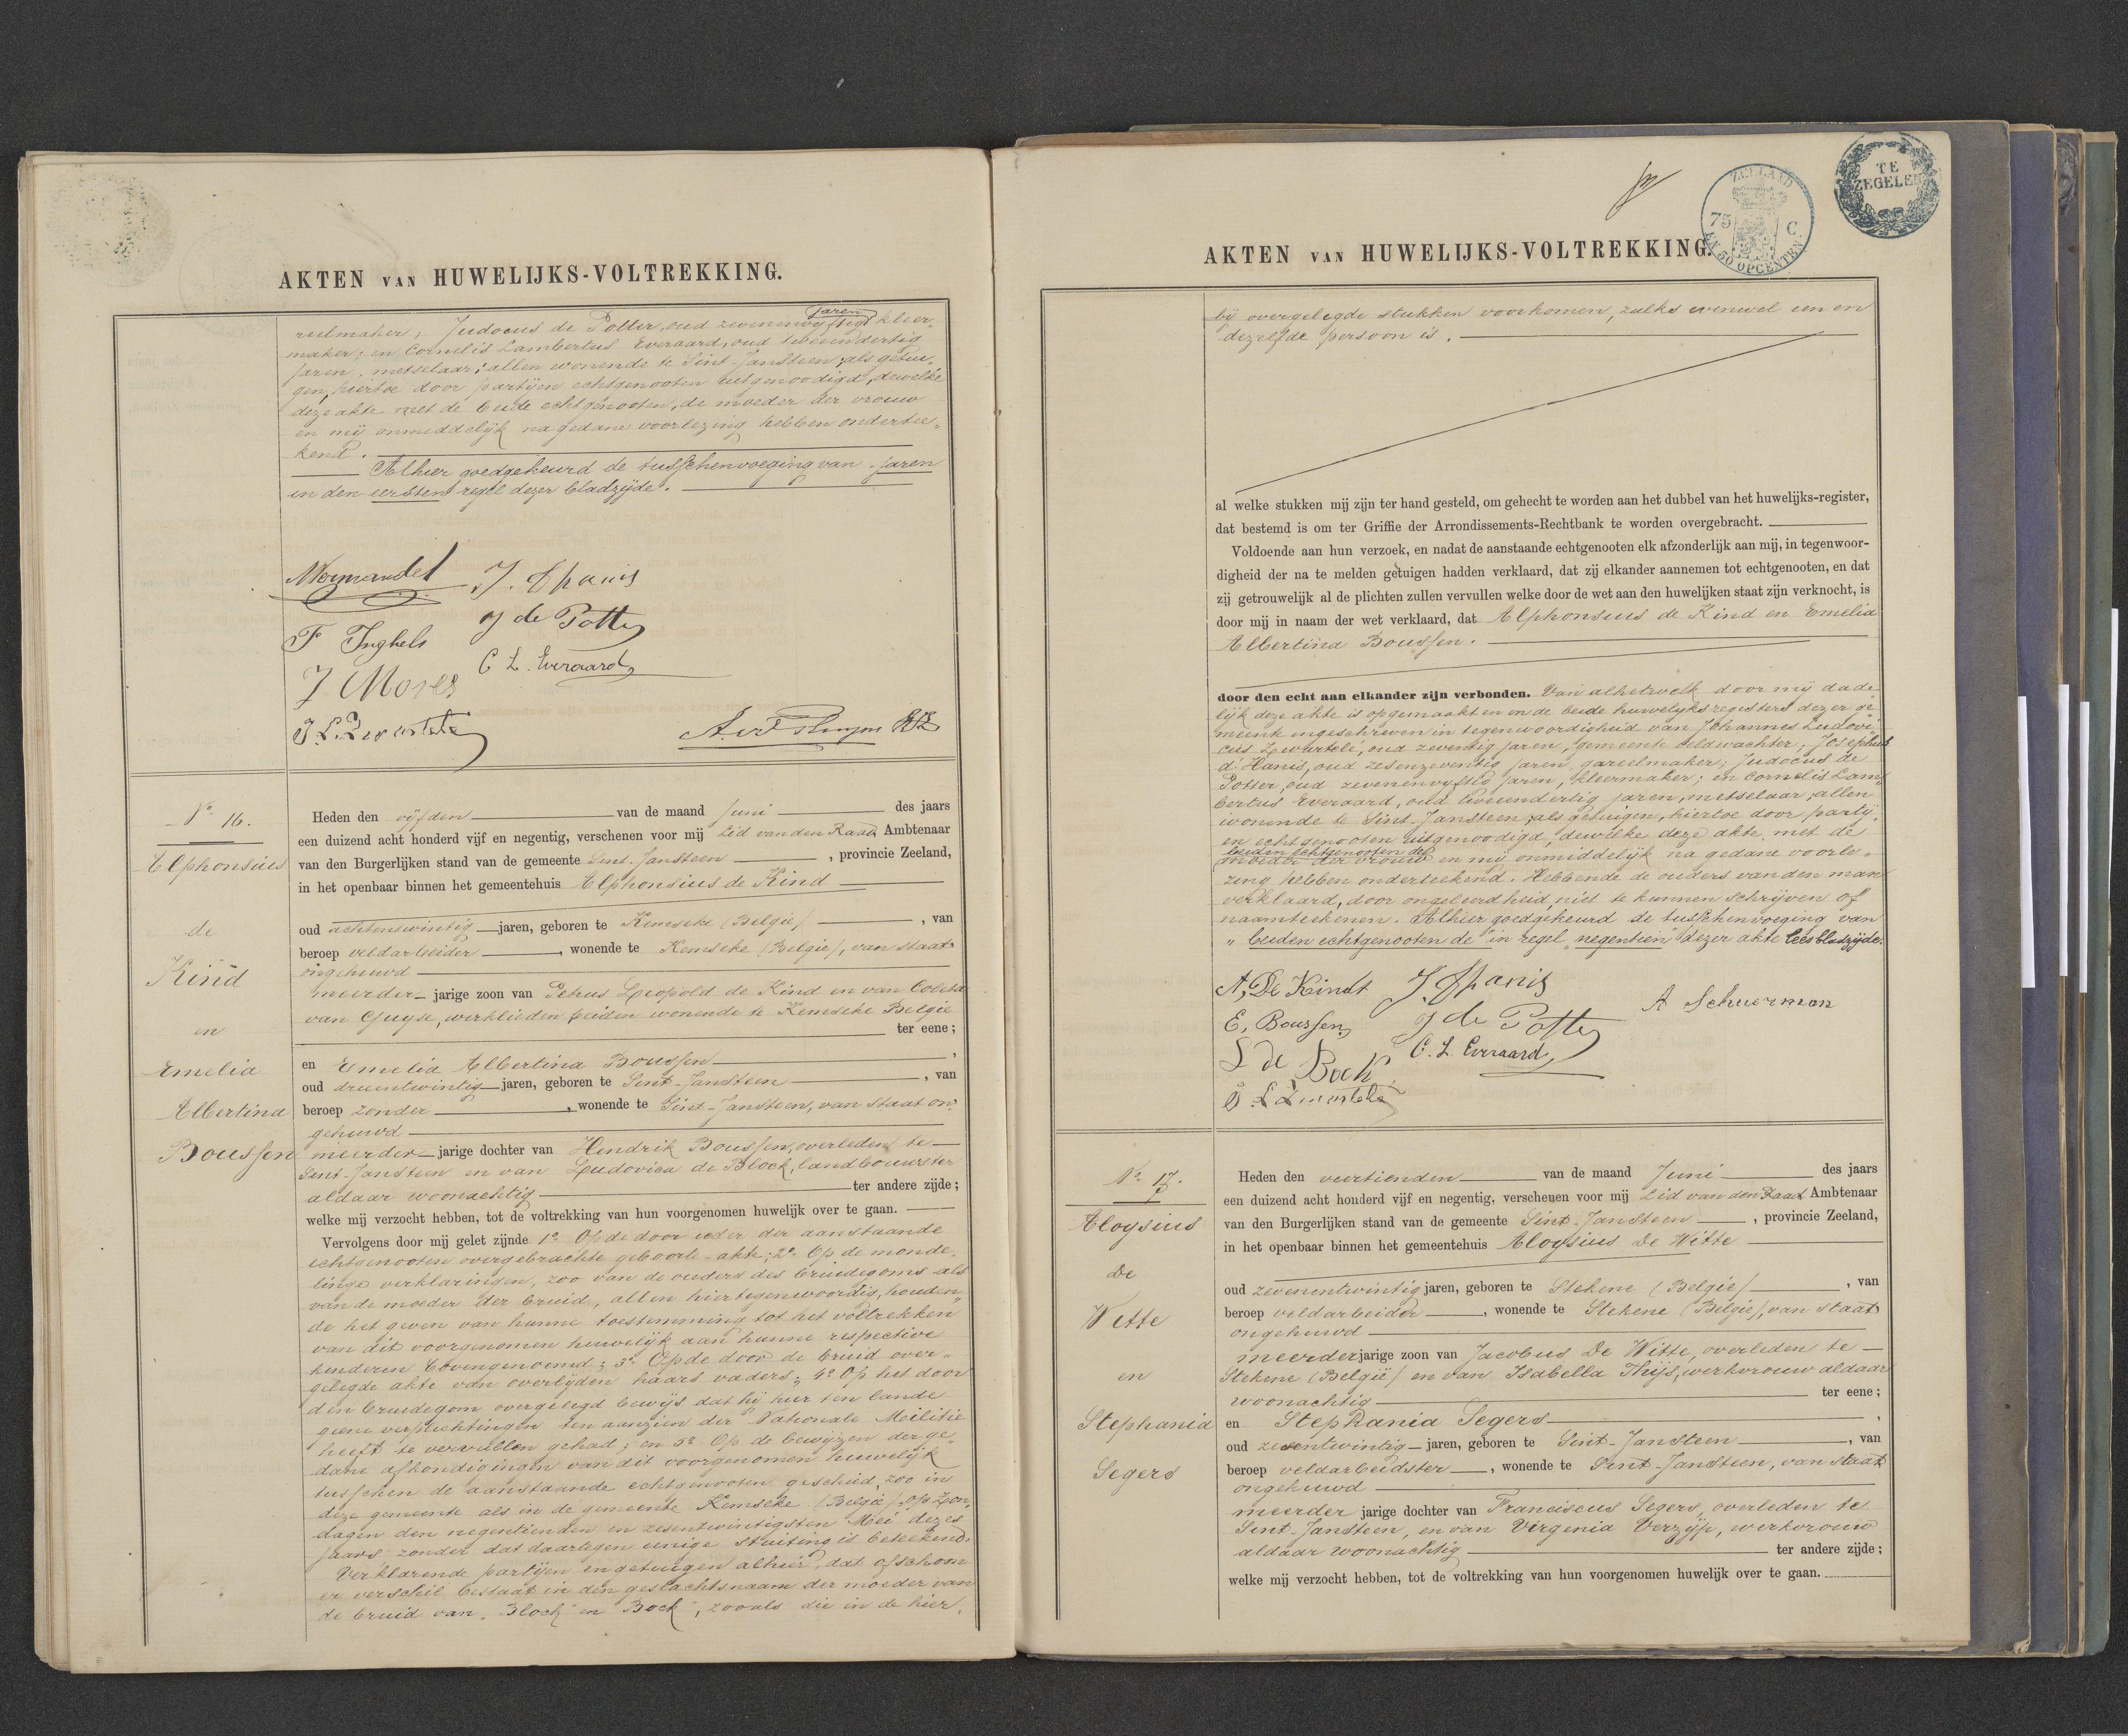 AKTEN VAN HUWELIJKS-VOLTREKKING.
jaren
reelmaker; Judocus de Potter, oud zevenenvijftig kleer„
maker; en Cornelis Lambertus Everaard, oud tweeendertig
jaren, metselaar; allen wonende te Sint-Jansteen; als getui„
gen, hiertoe door partijen echtgenooten uitgenoodigd, dewelke
deze akte met de beide echtgenooten, de moeder der vrouw
en mij onmiddelijk na gedane voorlezing hebben ondertee„
kend.
Alhier goedgekeurd de tusschenvoeging van „jaren
in den eersten regel dezer bladzijde.
J. Dhanis
F Inghels
J de Potter
C L. Everaard
J Mores
J. L. Zwartelé
No 16.
Alphonsius
de
Kind
en
Emelia
Albertina
Boussen
Heden den vijfden van de maand Juni des jaars
een duizend acht honderd vijf en negentig, verschenen voor mij Lid van den Raad Ambtenaar
van den Burgerlijken stand van de gemeente Sint-Jansteen, provincie Zeeland,
in het openbaar binnen het gemeentehuis Alphonsius de Kind
oud achtentwintig jaren, geboren te Kemseke (België), van
beroep veldarbeider, wonende te Kemseke (België), van staat
ongehuwd
meerder jarige zoon van Petrus Leopold de Kind en van Coleta
van Guyse, werklieden beiden wonende te Kemseke België
ter eene;
en Emelia Albertina Boussen,
oud drieentwintig jaren, geboren te Sint-Jansteen, van
beroep zonder, wonende te Sint-Jansteen, van staat on„
gehuwd
meerder jarige dochter van Hendrik Boussen, overleden te
Sint-Jansteen en van Ludovica de Block, landbouwster
aldaar woonachtig ter andere zijde;
welke mij verzocht hebben, tot de voltrekking van hun voorgenomen huwelijk over te gaan.
Vervolgens door mij gelet zijnde 1o Op de door ieder der aanstaande
echtgenooten overgebrachte geboorte-akte; 2o Op de monde„
linge verklaringen, zoo van de ouders des bruidegoms als
van de moeder der bruid, allen hier tegenwoordig, houden„
de het geven van hunne toestemming tot het voltrekken
van dit voorgenomen huwelijk aan hunne respective
kinderen bovengenoemd; 3o Op de door de bruid over„
gelegde akte van overlijden haars vaders; 4o Op het door
den bruidegom overgelegd bewijs dat hij hier ten lande
geene verplichtingen ten aanzien der Nationale Militie
heeft te vervullen gehad; en 5o Op de bewijzen der ge„
dane afkondigingen van dit voorgenomen huwelijk
tusschen de aanstaande echtgenooten geschied, zoo in
deze gemeente als in de gemeente Kemseke (België) op Zon„
dagen den negentienden en zesentwintigsten Mei dezes
jaars zonder dat daartegen eenige stuiting is beteekend.
Verklarende partijen en getuigen alhier, dat ofschoon
er verschil bestaat in den geslachtsnaam der moeder van
de bruid van „Block" en „Bock", zooals die in de hier„
TE
ZEGELEN
ZEELAND
75 C
EN 50 OPCENTEN
AKTEN VAN HUWELIJKS-VOLTREKKING.
bij overgelegde stukken voorkomen, zulks evenwel een en
dezelfde persoon is.
al welke stukken mij zijn ter hand gesteld, om gehecht te worden aan het dubbel van het huwelijks-register,
dat bestemd is om ter Griffie der Arrondissements-Rechtbank te worden overgebracht.
Voldoende aan hun verzoek, en nadat de aanstaande echtgenooten elk afzonderlijk aan mij, in tegenwoor-
digheid der na te melden getuigen hadden verklaard, dat zij elkander aannemen tot echtgenooten, en dat
zij getrouwelijk al de plichten zullen vervullen welke door de wet aan den huwelijken staat zijn verknocht, is
door mij in naam der wet verklaard, dat Alphonsius de Kind en Emelia
Albertina Boussen.
door den echt aan elkander zijn verbonden. Van al hetwelk door mij dade„
lijk deze akte is opgemaakt en in de beide huwelijksregisters dezer ge„
meente ingeschreven in tegenwoordigheid van Johannes Ludovi„
cus Zwartelé, oud zeventig jaren, gemeente veldwachter; Josephus
d'Hanis, oud zesenzeventig jaren, gareelmaker; Judocus de
Potter, oud zevenenvijftig jaren, kleermaker; en Cornelis Lam„
bertus Everaard, oud tweeendertig jaren, metselaar; allen
wonende te Sint-Jansteen; als getuigen, hiertoe door partij„
en echtgenooten uitgenoodigd, dewelke deze akte met de
beiden echtgenooten de
moeder der vrouw en mij onmiddelijk na gedane voorle„
zing hebben onderteekend. Hebbende de ouders van den man
verklaard, door ongeleerdheid, niet te kunnen schrijven of
naamteekenen. Alhier goedgekeurd de tusschenvoeging van
„beiden echtgenooten de" in regel „negentien" dezer akte lees bladzijde.
A, De Kindt
J. Dhanis
A Schuerman
E, Boussen
J de Potter
L de Bock
C. L. Everaard
J. L Zwartelé
No 17.
Aloysius
De
Witte
en
Stephania
Segers
Heden den veertienden van de maand Juni des jaars
een duizend acht honderd vijf en negentig, verschenen voor mij Lid van den Raad Ambtenaar
van den Burgerlijken stand van de gemeente Sint-Jansteen, provincie Zeeland,
in het openbaar binnen het gemeentehuis Aloysius De Witte
oud zevenentwintig jaren, geboren te Stekene (België), van
beroep veldarbeider, wonende te Stekene (België), van staat
ongehuwd
meerder jarige zoon van Jacobus De Witte, overleden te
Stekene (België) en van Isabella Thijs, werkvrouw aldaar
woonachtig ter eene;
en Stephania Segers,
oud zesentwintig jaren, geboren te Sint-Jansteen, van
beroep veldarbeidster, wonende te Sint-Jansteen, van staat
ongehuwd
meerder jarige dochter van Franciscus Segers, overleden te
Sint-Jansteen, en van Virginia Verzijp, werkvrouw
aldaar woonachtig ter andere zijde;
welke mij verzocht hebben, tot de voltrekking van hun voorgenomen huwelijk over te gaan.